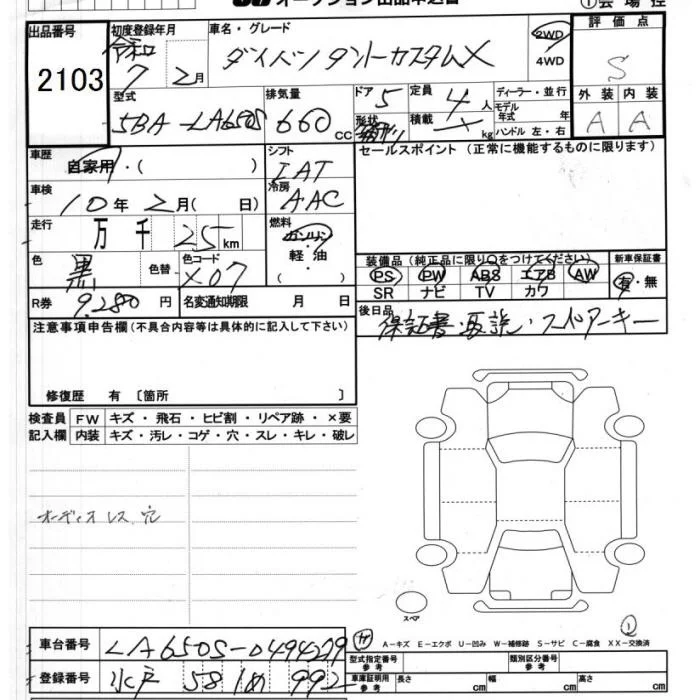 オークション出品申込書
①会場控
出品番号 2103
初度登録年月 令和7 2月
車名・グレード ダイハツ タントカスタムX
2WD
4WD
評価点 S
型式 5BA-LA650S
排気量 660 CC
ドア 5
定員 4人
形状 箱形
積載 kg
ディーラー・並行
モデル年式 年
ハンドル 左・右
外装 A
内装 A
車歴 自家用・( )
シフト IAT
セールスポイント (正常に機能するものに限ります)
車検 10年2月( 日)
冷房 AAC
走行 万 千 25km
燃料 ガソリン
軽油
・
( )
色 黒 色替
色コード X07
装備品 (純正品に限り○をつけてください)
PS PW ABS エアB AW
SR ナビ TV カワ
新車保証書 有・無
R券 9,280円
名変通知期限 月 日
後日品 保証書・取説・スペアーキー
注意事項申告欄(不具合内容等は具体的に記入して下さい)
修復歴 有 〔箇所 〕
検査員記入欄
FW キズ・飛石・ヒビ割・リペア跡・×要
内装 キズ・汚レ・コゲ・穴・スレ・キレ・破レ
オーディオレス穴
スペア
①
A-キズ E-エクボ U-凹み W-補修跡 S-サビ C-腐食 XX-交換済
車台番号 LA650S-0494279
型式指定番号 参考
類別区分番号 参考
登録番号 水戸 581 992
車庫証明用 参考
長さ cm
幅 cm
高さ cm